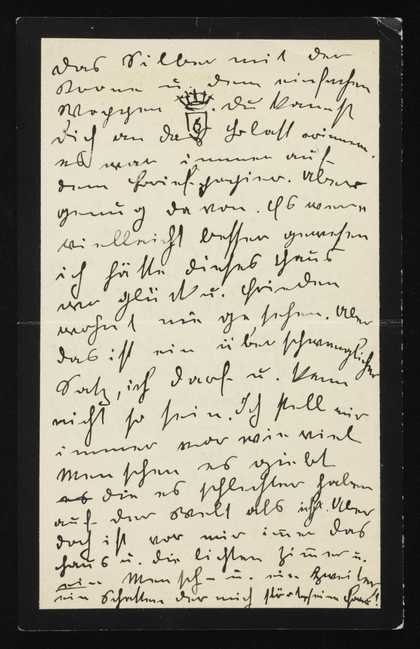 das Silber mit der
Krone u. dem einfachen
Wappen 6. Du kannst
Dich an das Blatt erinnern.
es war immer auf
dem Brief-papier. Aber
genug davon. Es wäre
vielleicht besser gewesen
ich hätte dieses Haus
wo Glück u. Frieden
wohnt nie gesehen. Aber
das ist ein überschwenglicher
Satz, ich darf u. kann
nicht so sein. Ich stell mir
immer vor wie viel
Menschen es giebt
die es schlechter haben
auf der Welt als ich. Aber
doch ist vor mir immer das
Haus u. die lichten Zimmer u.
ein Mensch - u. ein zweiter
ein Schatten der mich